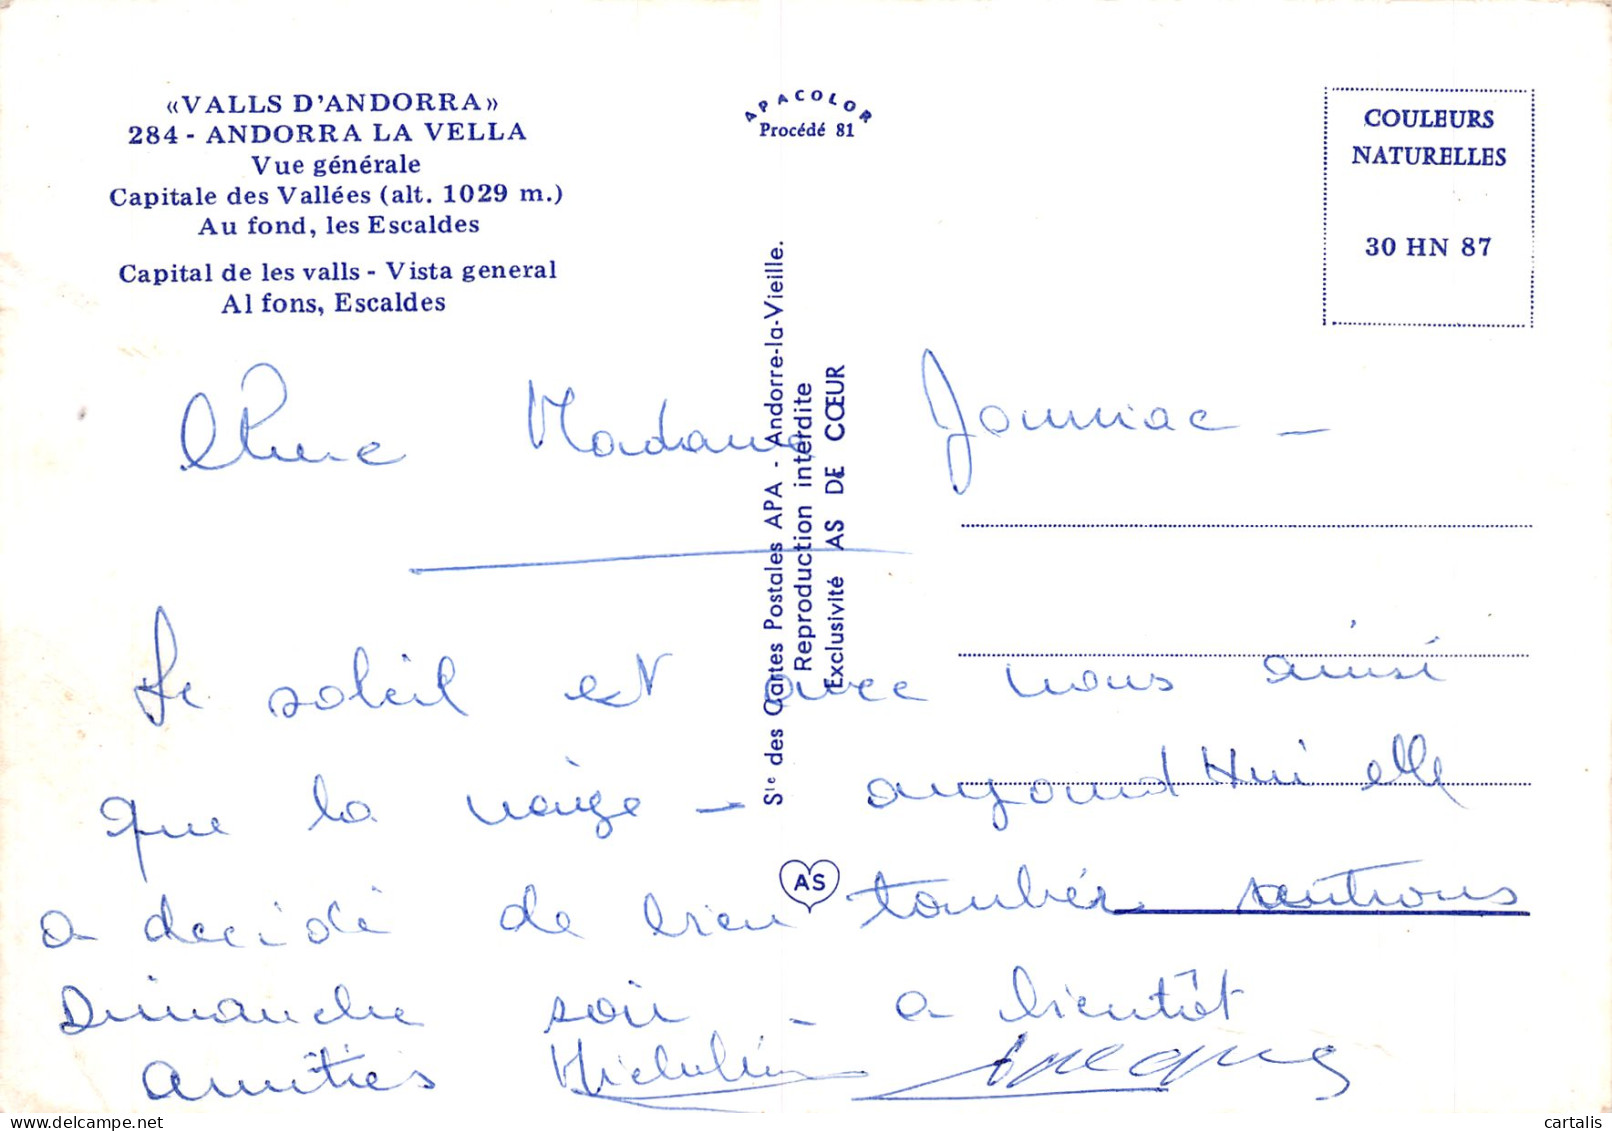 «VALLS D'ANDORRA»
284 - ANDORRA LA VELLA
Vue générale
Capitale des Vallées (alt. 1029 m.)
Au fond, les Escaldes
Capital de les valls - Vista general
Al fons, Escaldes
APACOLOR
Procédé 81
COULEURS
NATURELLES
30 HN 87
Sᵗᵉ des Cartes Postales APA - Andorre-la-Vieille.
Reproduction interdite
Exclusivité AS DE CŒUR
AS
Chère Madame Jouniac -
Le soleil est avec nous ainsi
que la neige - aujourd'Hui elle
a decidé de bien tombér rentrons
Dimanche soir - a bientôt
Amitiés
cartalis